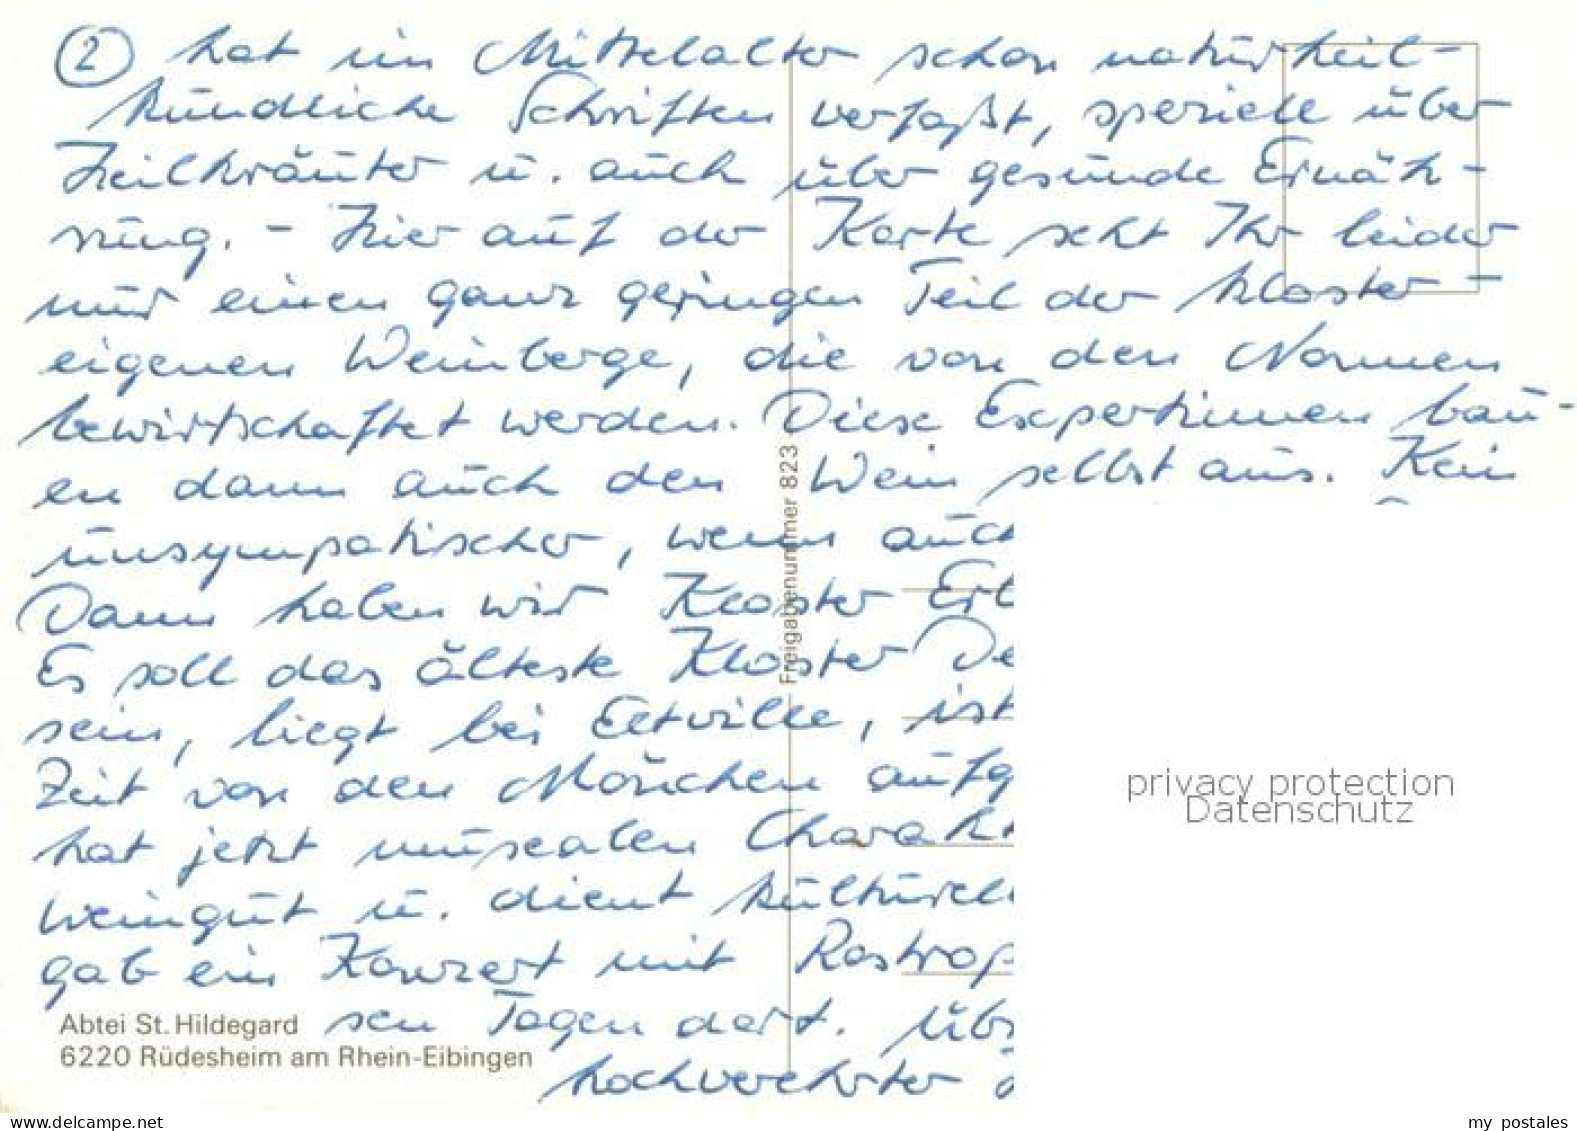 ② hat im Mittelalter schon naturheil-
kundliche Schriften verfaßt, speziell über
Heilkräuter u. auch über gesunde Ernäh-
rung. - Hier auf der Karte seht Ihr leider
nur einen ganz geringen Teil der kloster-
eigenen Weinberge, die von den Nonnen
bewirtschaftet werden. Diese Expertinnen bau-
en dann auch den Wein selbst aus. Kein
unsympatischer, wenn auch
Dann haben wir Kloster Erb
Es soll das älteste Kloster De
sein, liegt bei Eltville, ist
Zeit von den Mönchen aufg
hat jetzt musealen Charakt
weingut u. dient kulturell
gab ein Konzert mit Rostrop
sen Tagen dort. Übs
hochverehrter
Abtei St. Hildegard
6220 Rüdesheim am Rhein-Eibingen
Freigabenummer 823
privacy protection
Datenschutz
delcampe.net
my_postales